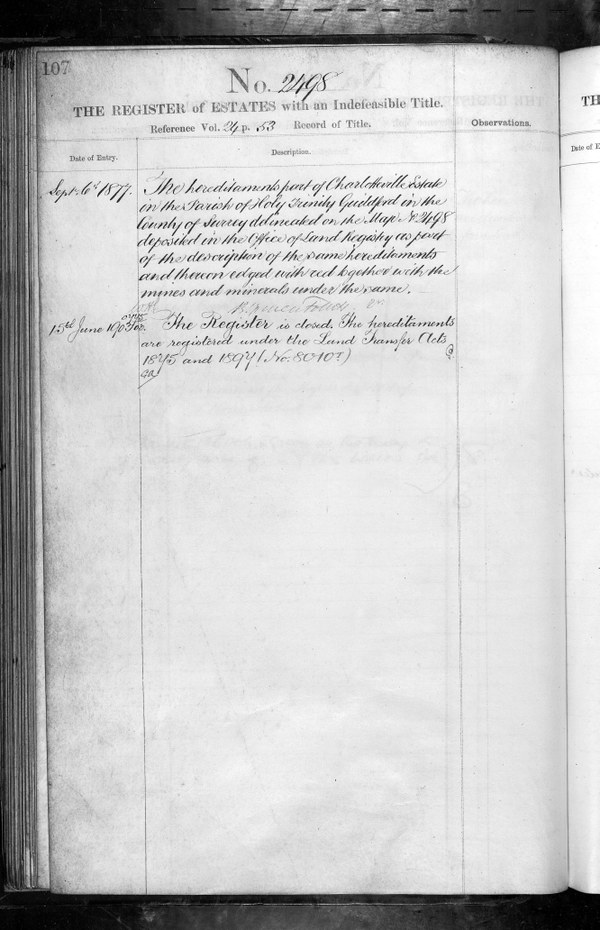 107
No. 2498
THE REGISTER of ESTATES with an Indefeasible Title.
Reference Vol. 24 p. 53 Record of Title.
Observations.
Date of Entry.
Description.
Sept. 6th 1877.
The hereditaments part of Charlotteville Estate
in the Parish of Holy Trinity Guildford in the
County of Surrey delineated on the Map No 2498
deposited in the Office of Land Registry as part
of the description of the same hereditaments
and thereon edged with red together with the
mines and minerals under the same.
13th June
The Register is closed. The hereditaments
are registered under the Land Transfer Acts
1875 and 1897 (No:
TH
Date of E